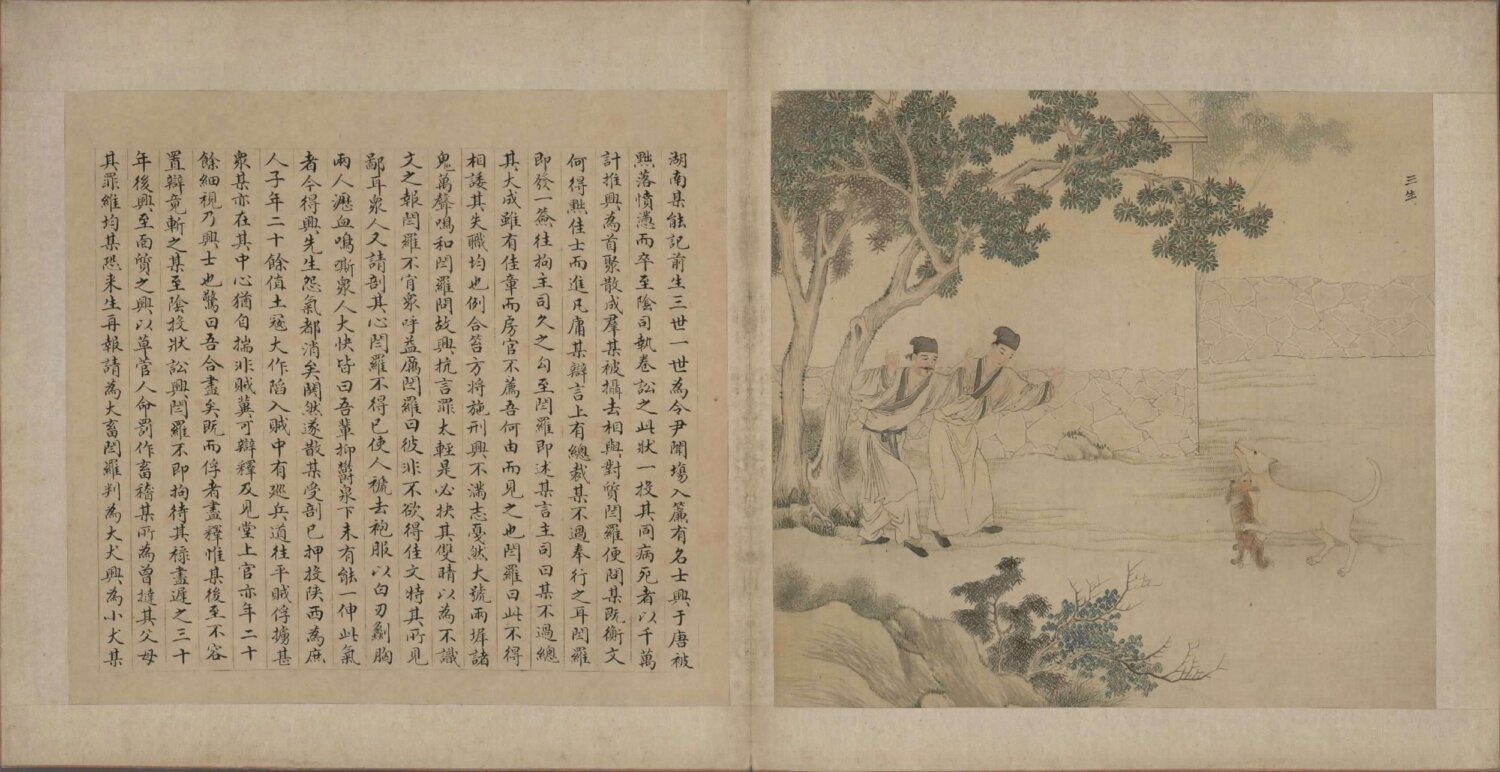 三生
湖南某能記前生三世一世為今尹闈塲入簾有名士興于唐被
黜落憤懣而卒至陰司執卷訟之此狀一投其同病死者以千萬
計推興為首聚散成羣某被攝去相與對質閻羅便問某既衡文
何得黜佳士而進凡庸某辯言上有總裁某不過奉行之耳閻羅
即發一簽往拘主司久之勾至閻羅即述某言主司曰某不過總
其大成雖有佳章而房官不薦吾何由而見之也閻羅曰此不得
相諉其失職均也例合笞方將施刑興不滿志戛然大號兩墀諸
鬼萬聲鳴和閻羅問故興抗言罪太輕是必抉其雙睛以為不識
文之報閻羅不肯衆呼益厲閻羅曰彼非不欲得佳文特其所見
鄙耳衆人又請剖其心閻羅不得已使人褫去袍服以白刃劙胸
兩人瀝血鳴嘶衆人大快皆曰吾輩抑鬱泉下未有能一伸此氣
者今得興先生怨氣都消矣鬨然遂散某受剖已押投陝西為庶
人子年二十餘值土寇大作陷入賊中有巡兵道往平賊俘擄甚
衆某亦在其中心猶自揣非賊冀可辯釋及見堂上官亦年二十
餘細視乃興士也驚曰吾合盡矣既而俘者盡釋惟某後至不容
置辯竟斬之某至陰投狀訟興閻羅不即拘待其祿盡遲之三十
年後興至面質之興以草菅人命罰作畜稽某所為曾撻其父母
其罪維均某恐来生再報請為大畜閻羅判為大犬興為小犬某